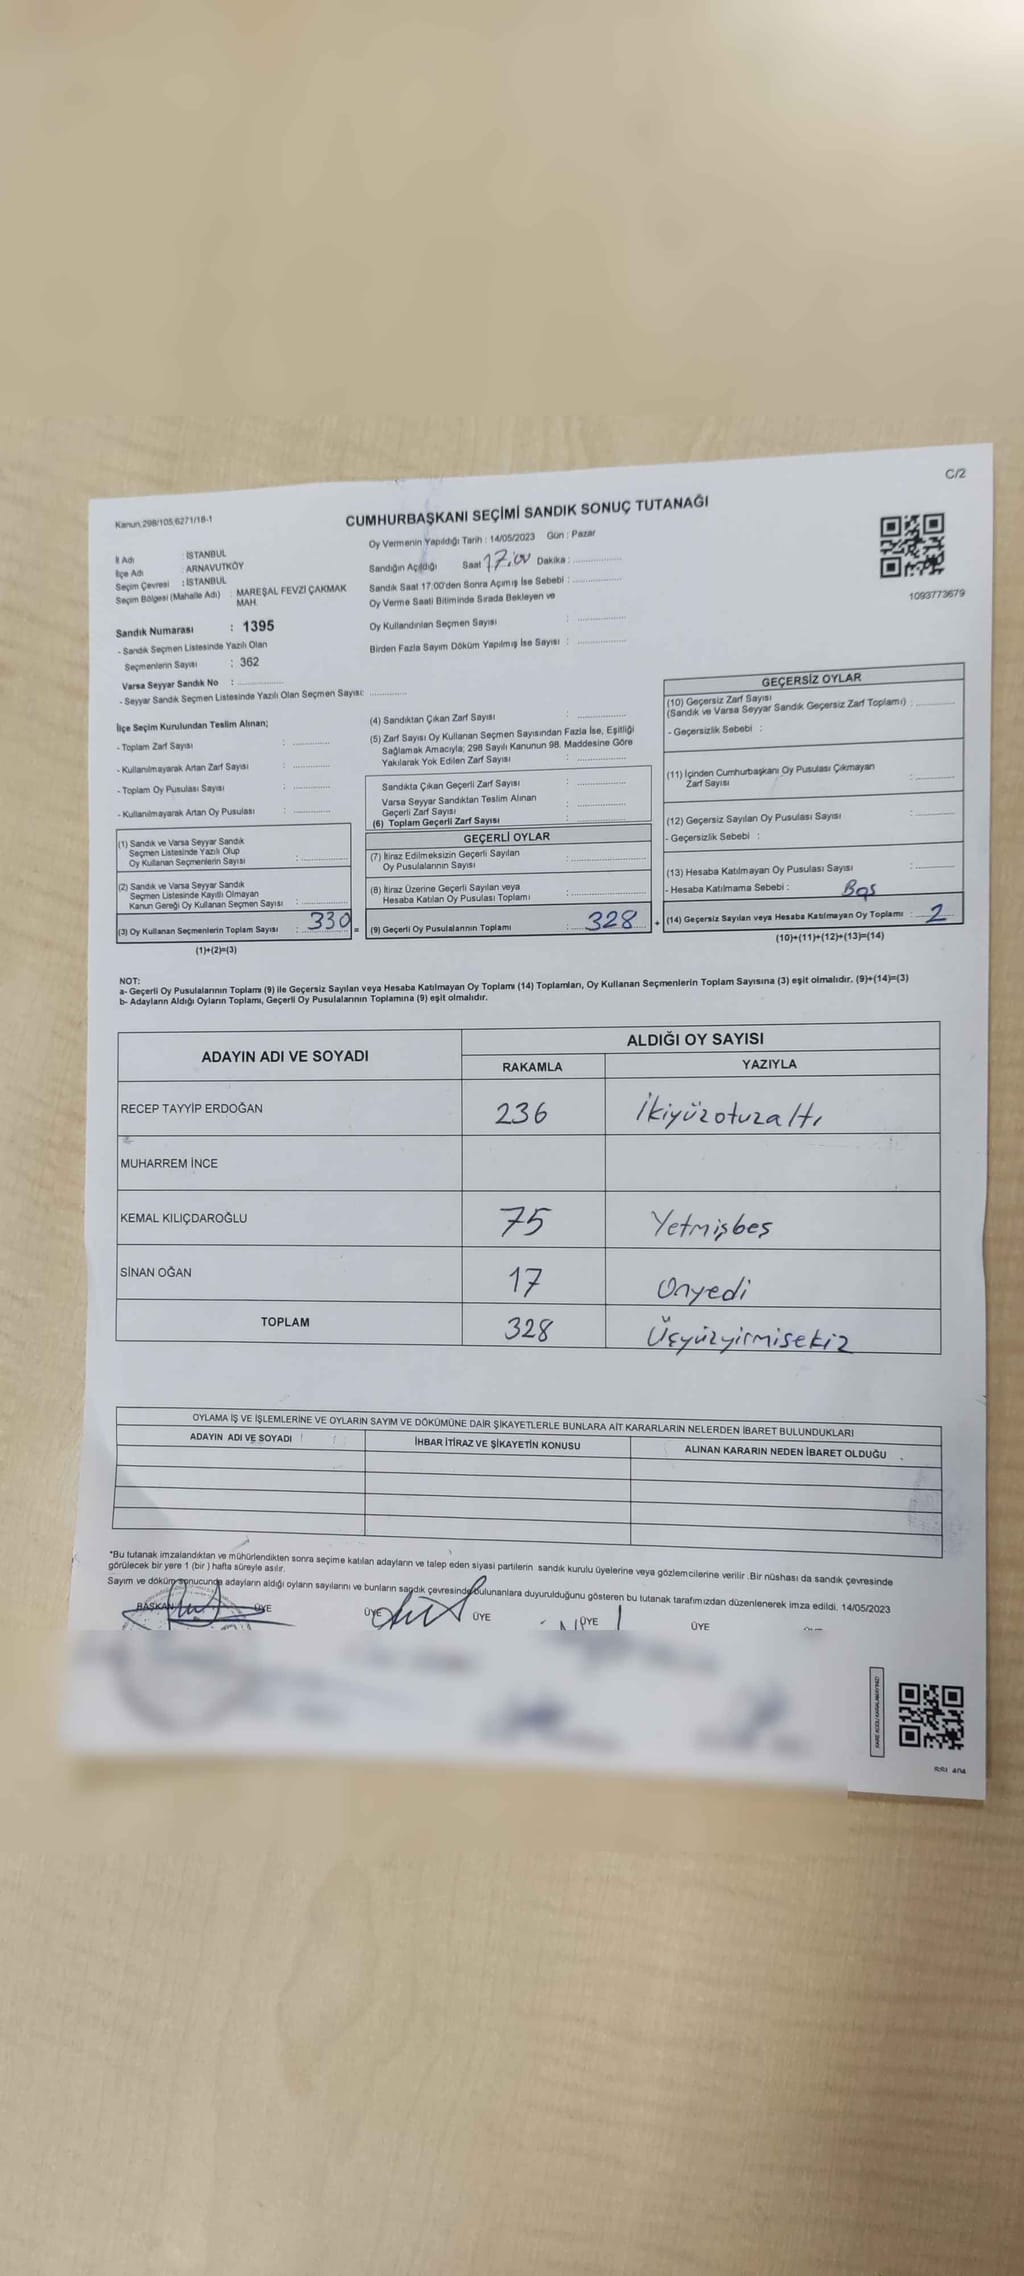 C/2
Kanun:298/105,6271/18-1
CUMHURBAŞKANI SEÇİMİ SANDIK SONUÇ TUTANAĞI
1093773679
İl Adı : İSTANBUL
İlçe Adı : ARNAVUTKÖY
Seçim Çevresi : İSTANBUL
Seçim Bölgesi (Mahalle Adı) : MAREŞAL FEVZİ ÇAKMAK
MAH.
Sandık Numarası : 1395
- Sandık Seçmen Listesinde Yazılı Olan
Seçmenlerin Sayısı : 362
Varsa Seyyar Sandık No :
- Seyyar Sandık Seçmen Listesinde Yazılı Olan Seçmen Sayısı:
Oy Vermenin Yapıldığı Tarih : 14/05/2023 Gün : Pazar
Sandığın Açıldığı Saat 17:00 Dakika :
Sandık Saat 17:00'den Sonra Açımış İse Sebebi :
Oy Verme Saati Bitiminde Sırada Bekleyen ve
Oy Kullandırılan Seçmen Sayısı :
Birden Fazla Sayım Döküm Yapılmış İse Sayısı :
İlçe Seçim Kurulundan Teslim Alınan;
- Toplam Zarf Sayısı :
- Kullanılmayarak Artan Zarf Sayısı :
- Toplam Oy Pusulası Sayısı :
- Kullanılmayarak Artan Oy Pusulası :
(1) Sandık ve Varsa Seyyar Sandık
Seçmen Listesinde Yazılı Olup
Oy Kullanan Seçmenlerin Sayısı :
(2) Sandık ve Varsa Seyyar Sandık
Seçmen Listesinde Kayıtlı Olmayan
Kanun Gereği Oy Kullanan Seçmen Sayısı :
(3) Oy Kullanan Seçmenlerin Toplam Sayısı : 330 =
(1)+(2)=(3)
(4) Sandıktan Çıkan Zarf Sayısı :
(5) Zarf Sayısı Oy Kullanan Seçmen Sayısından Fazla İse, Eşitliği
Sağlamak Amacıyla; 298 Sayılı Kanunun 98. Maddesine Göre
Yakılarak Yok Edilen Zarf Sayısı :
Sandıkta Çıkan Geçerli Zarf Sayısı :
Varsa Seyyar Sandıktan Teslim Alınan
Geçerli Zarf Sayısı :
(6) Toplam Geçerli Zarf Sayısı :
GEÇERLİ OYLAR
(7) İtiraz Edilmeksizin Geçerli Sayılan
Oy Pusulalarının Sayısı :
(8) İtiraz Üzerine Geçerli Sayılan veya
Hesaba Katılan Oy Pusulası Toplamı :
(9) Geçerli Oy Pusulalarının Toplamı : 328 +
GEÇERSİZ OYLAR
(10) Geçersiz Zarf Sayısı
(Sandık ve Varsa Seyyar Sandık Geçersiz Zarf Toplamı) :
- Geçersizlik Sebebi :
(11) İçinden Cumhurbaşkanı Oy Pusulası Çıkmayan
Zarf Sayısı :
(12) Geçersiz Sayılan Oy Pusulası Sayısı :
- Geçersizlik Sebebi :
(13) Hesaba Katılmayan Oy Pusulası Sayısı :
- Hesaba Katılmama Sebebi : Boş
(14) Geçersiz Sayılan veya Hesaba Katılmayan Oy Toplamı : 2
(10)+(11)+(12)+(13)=(14)
NOT:
a- Geçerli Oy Pusulalarının Toplamı (9) ile Geçersiz Sayılan veya Hesaba Katılmayan Oy Toplamı (14) Toplamları, Oy Kullanan Seçmenlerin Toplam Sayısına (3) eşit olmalıdır. (9)+(14)=(3)
b- Adayların Aldığı Oyların Toplamı, Geçerli Oy Pusulalarının Toplamına (9) eşit olmalıdır.
ADAYIN ADI VE SOYADI ALDIĞI OY SAYISI
RAKAMLA YAZIYLA
RECEP TAYYİP ERDOĞAN 236 İkiyüzotuzaltı
MUHARREM İNCE
KEMAL KILIÇDAROĞLU 75 Yetmişbeş
SİNAN OĞAN 17 Onyedi
TOPLAM 328 Üçyüzyirmisekiz
OYLAMA İŞ VE İŞLEMLERİNE VE OYLARIN SAYIM VE DÖKÜMÜNE DAİR ŞİKAYETLERLE BUNLARA AİT KARARLARIN NELERDEN İBARET BULUNDUKLARI
ADAYIN ADI VE SOYADI İHBAR İTİRAZ VE ŞİKAYETİN KONUSU ALINAN KARARIN NEDEN İBARET OLDUĞU
*Bu tutanak imzalandıktan ve mühürlendikten sonra seçime katılan adayların ve talep eden siyasi partilerin sandık kurulu üyelerine veya gözlemcilerine verilir .Bir nüshası da sandık çevresinde
görülecek bir yere 1 (bir) hafta süreyle asılır.
Sayım ve döküm sonucunda adayların aldığı oyların sayılarını ve bunların sandık çevresinde bulunanlara duyurulduğunu gösteren bu tutanak tarafımızdan düzenlenerek imza edildi. 14/05/2023
BAŞKAN ÜYE ÜYE ÜYE ÜYE ÜYE